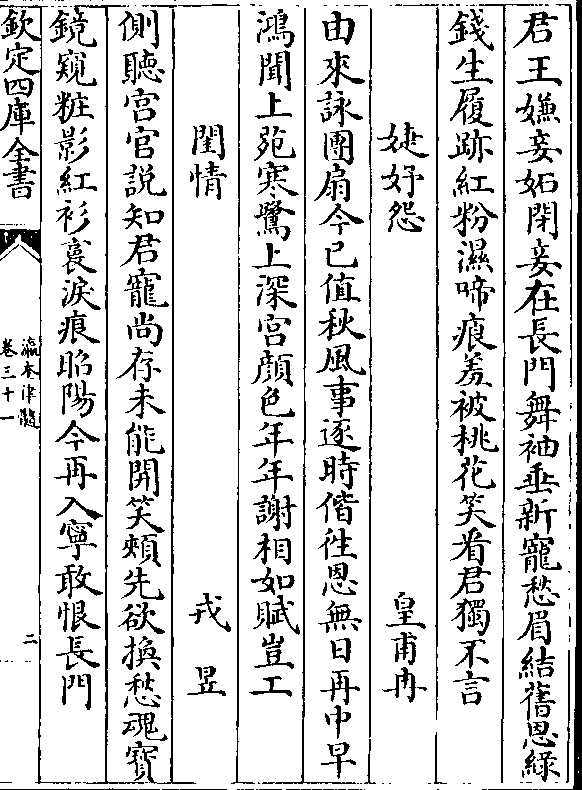 君王嫌妾妬閉妾在長門舞袖垂新寵愁眉結舊恩綠
錢生履跡紅粉濕啼痕羞被桃花笑看君獨不言
婕妤怨　皇甫冉
由來詠團扇今已值秋風事逐時偕徃恩無日再中早
鴻聞上苑寒鷺上深宮顔色年年謝相如賦豈工
閨情　戎昱
側聽宮官説知君寵尚存未能開笑頰先欲換愁魂寳
鏡窺粧影紅衫裛淚痕昭陽今再入寧敢恨長門
欽定四庫全書
瀛奎律髓
卷三十一
二